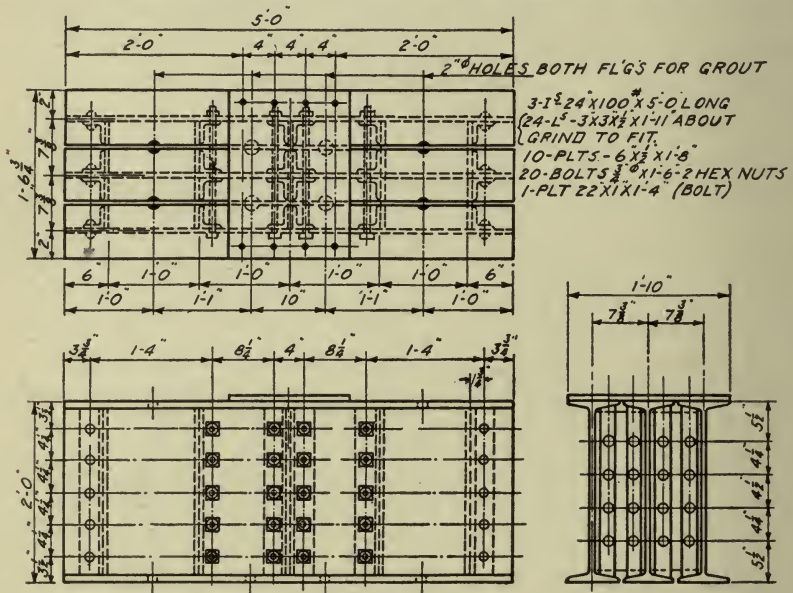 5'-0"
2'-0" 4" 4" 4" 2'-0"
2"ø HOLES BOTH FL'GS FOR GROUT
3-Iˢ-24"X100#X5'-0 LONG
24-Lˢ-3X3X½"X1'-11" ABOUT
GRIND TO FIT.
10-PLTS.-6"X½"X1'-8"
20-BOLTS ¾"øX1'-6-2 HEX NUTS
1-PLT 22X1"X1'-4" (BOLT)
1'-6¾"
2"
7⅜"
7⅜"
2"
6" 1'-0" 1'-0" 1'-0" 1'-0" 6"
1'-0" 1'-1" 10" 1'-1" 1'-0"
3¾" 1'-4" 8¼" 4" 8¼" 1'-4" 3¾"
1¾"
2'-0"
3½"
4¼"
4¼"
4¼"
4¼"
3½"
1'-10"
7⅜" 7⅜"
5½"
4¼"
4½"
4¼"
5½"